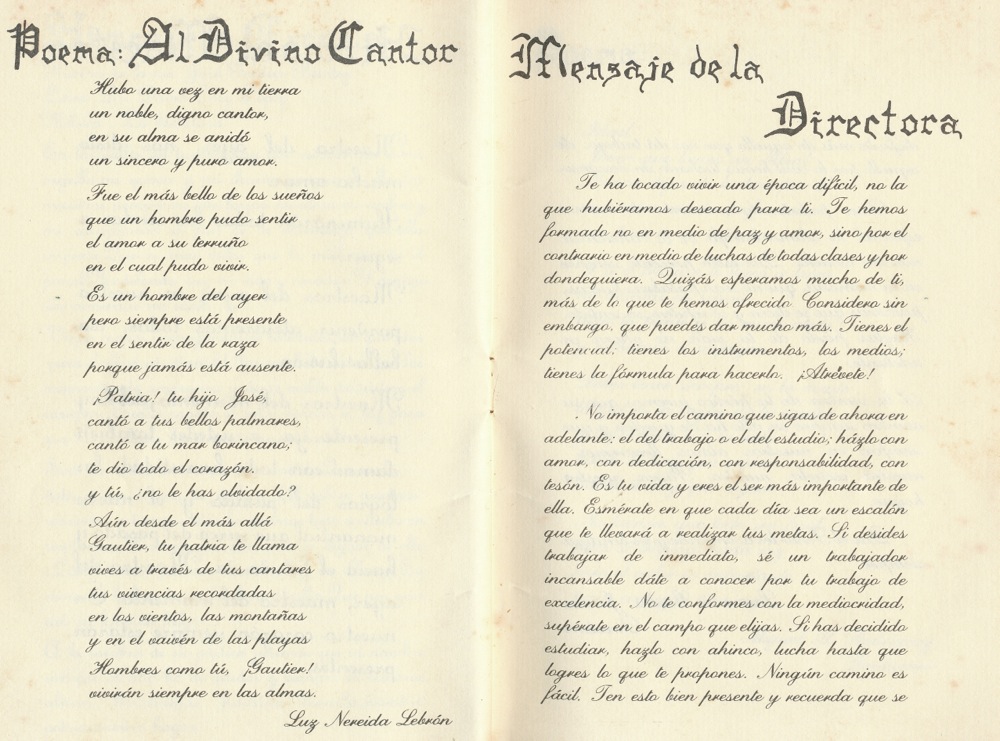 Poema: Al Divino Cantor
Hubo una vez en mi tierra
un noble, digno cantor,
en su alma se anidó
un sincero y puro amor.
Fue el más bello de los sueños
que un hombre pudo sentir
el amor a su terruño
en el cual pudo vivir.
Es un hombre del ayer
pero siempre está presente
en el sentir de la raza
porque jamás está ausente.
¡Patria! tu hijo José,
cantó a tus bellos palmares,
cantó a tu mar borincano;
te dio todo el corazón.
y tú, ¿no le has olvidado?
Aún desde el más allá
Gautier, tu patria te llama
vives a través de tus cantares
tus vivencias recordadas
en los vientos, las montañas
y en el vaivén de las playas
Hombres como tú, ¡Gautier!
vivirán siempre en las almas.
Luz Nereida Lebrón
Mensaje de la
Directora
Te ha tocado vivir una época difícil, no la
que hubiéramos deseado para ti. Te hemos
formado no en medio de paz y amor, sino por el
contrario en medio de luchas de todas clases y por
dondequiera. Quizás esperamos mucho de ti,
más de lo que te hemos ofrecido. Considero sin
embargo, que puedes dar mucho más. Tienes el
potencial; tienes los instrumentos, los medios;
tienes la fórmula para hacerlo. ¡Atrévete!
No importa el camino que sigas de ahora en
adelante: el del trabajo o el del estudio; házlo con
amor, con dedicación, con responsabilidad, con
tesón. Es tu vida y eres el ser más importante de
ella. Esmérate en que cada día sea un escalón
que te llevará a realizar tus metas. Si desides
trabajar de inmediato, sé un trabajador
incansable dáte a conocer por tu trabajo de
excelencia. No te conformes con la mediocridad,
supérate en el campo que elijas. Si has decidido
estudiar, hazlo con ahinco, lucha hasta que
logres lo que te propones. Ningún camino es
fácil. Ten esto bien presente y recuerda que se